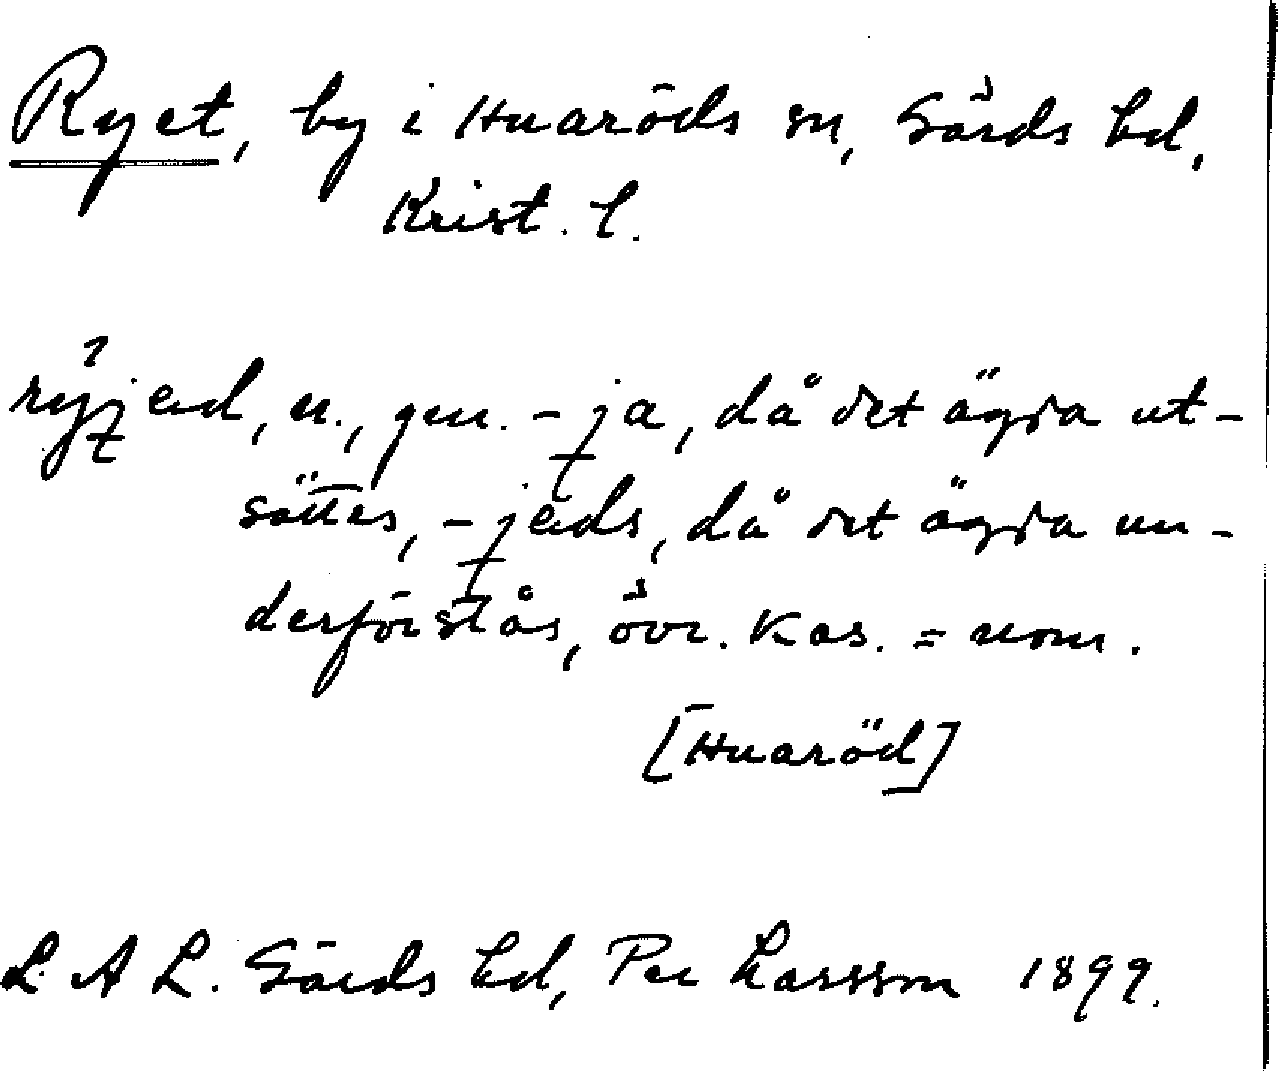 Ryet, by i Huaröds sn, Gärds hd,
Krist. l.
rÿjed, n., gen. -ja, då det ägda ut-
sättes, -jeds, då det ägda un-
derförstås, övr. kas. = nom.
[Huaröd]
L A L. Gärds hd, Per Larsson 1899.